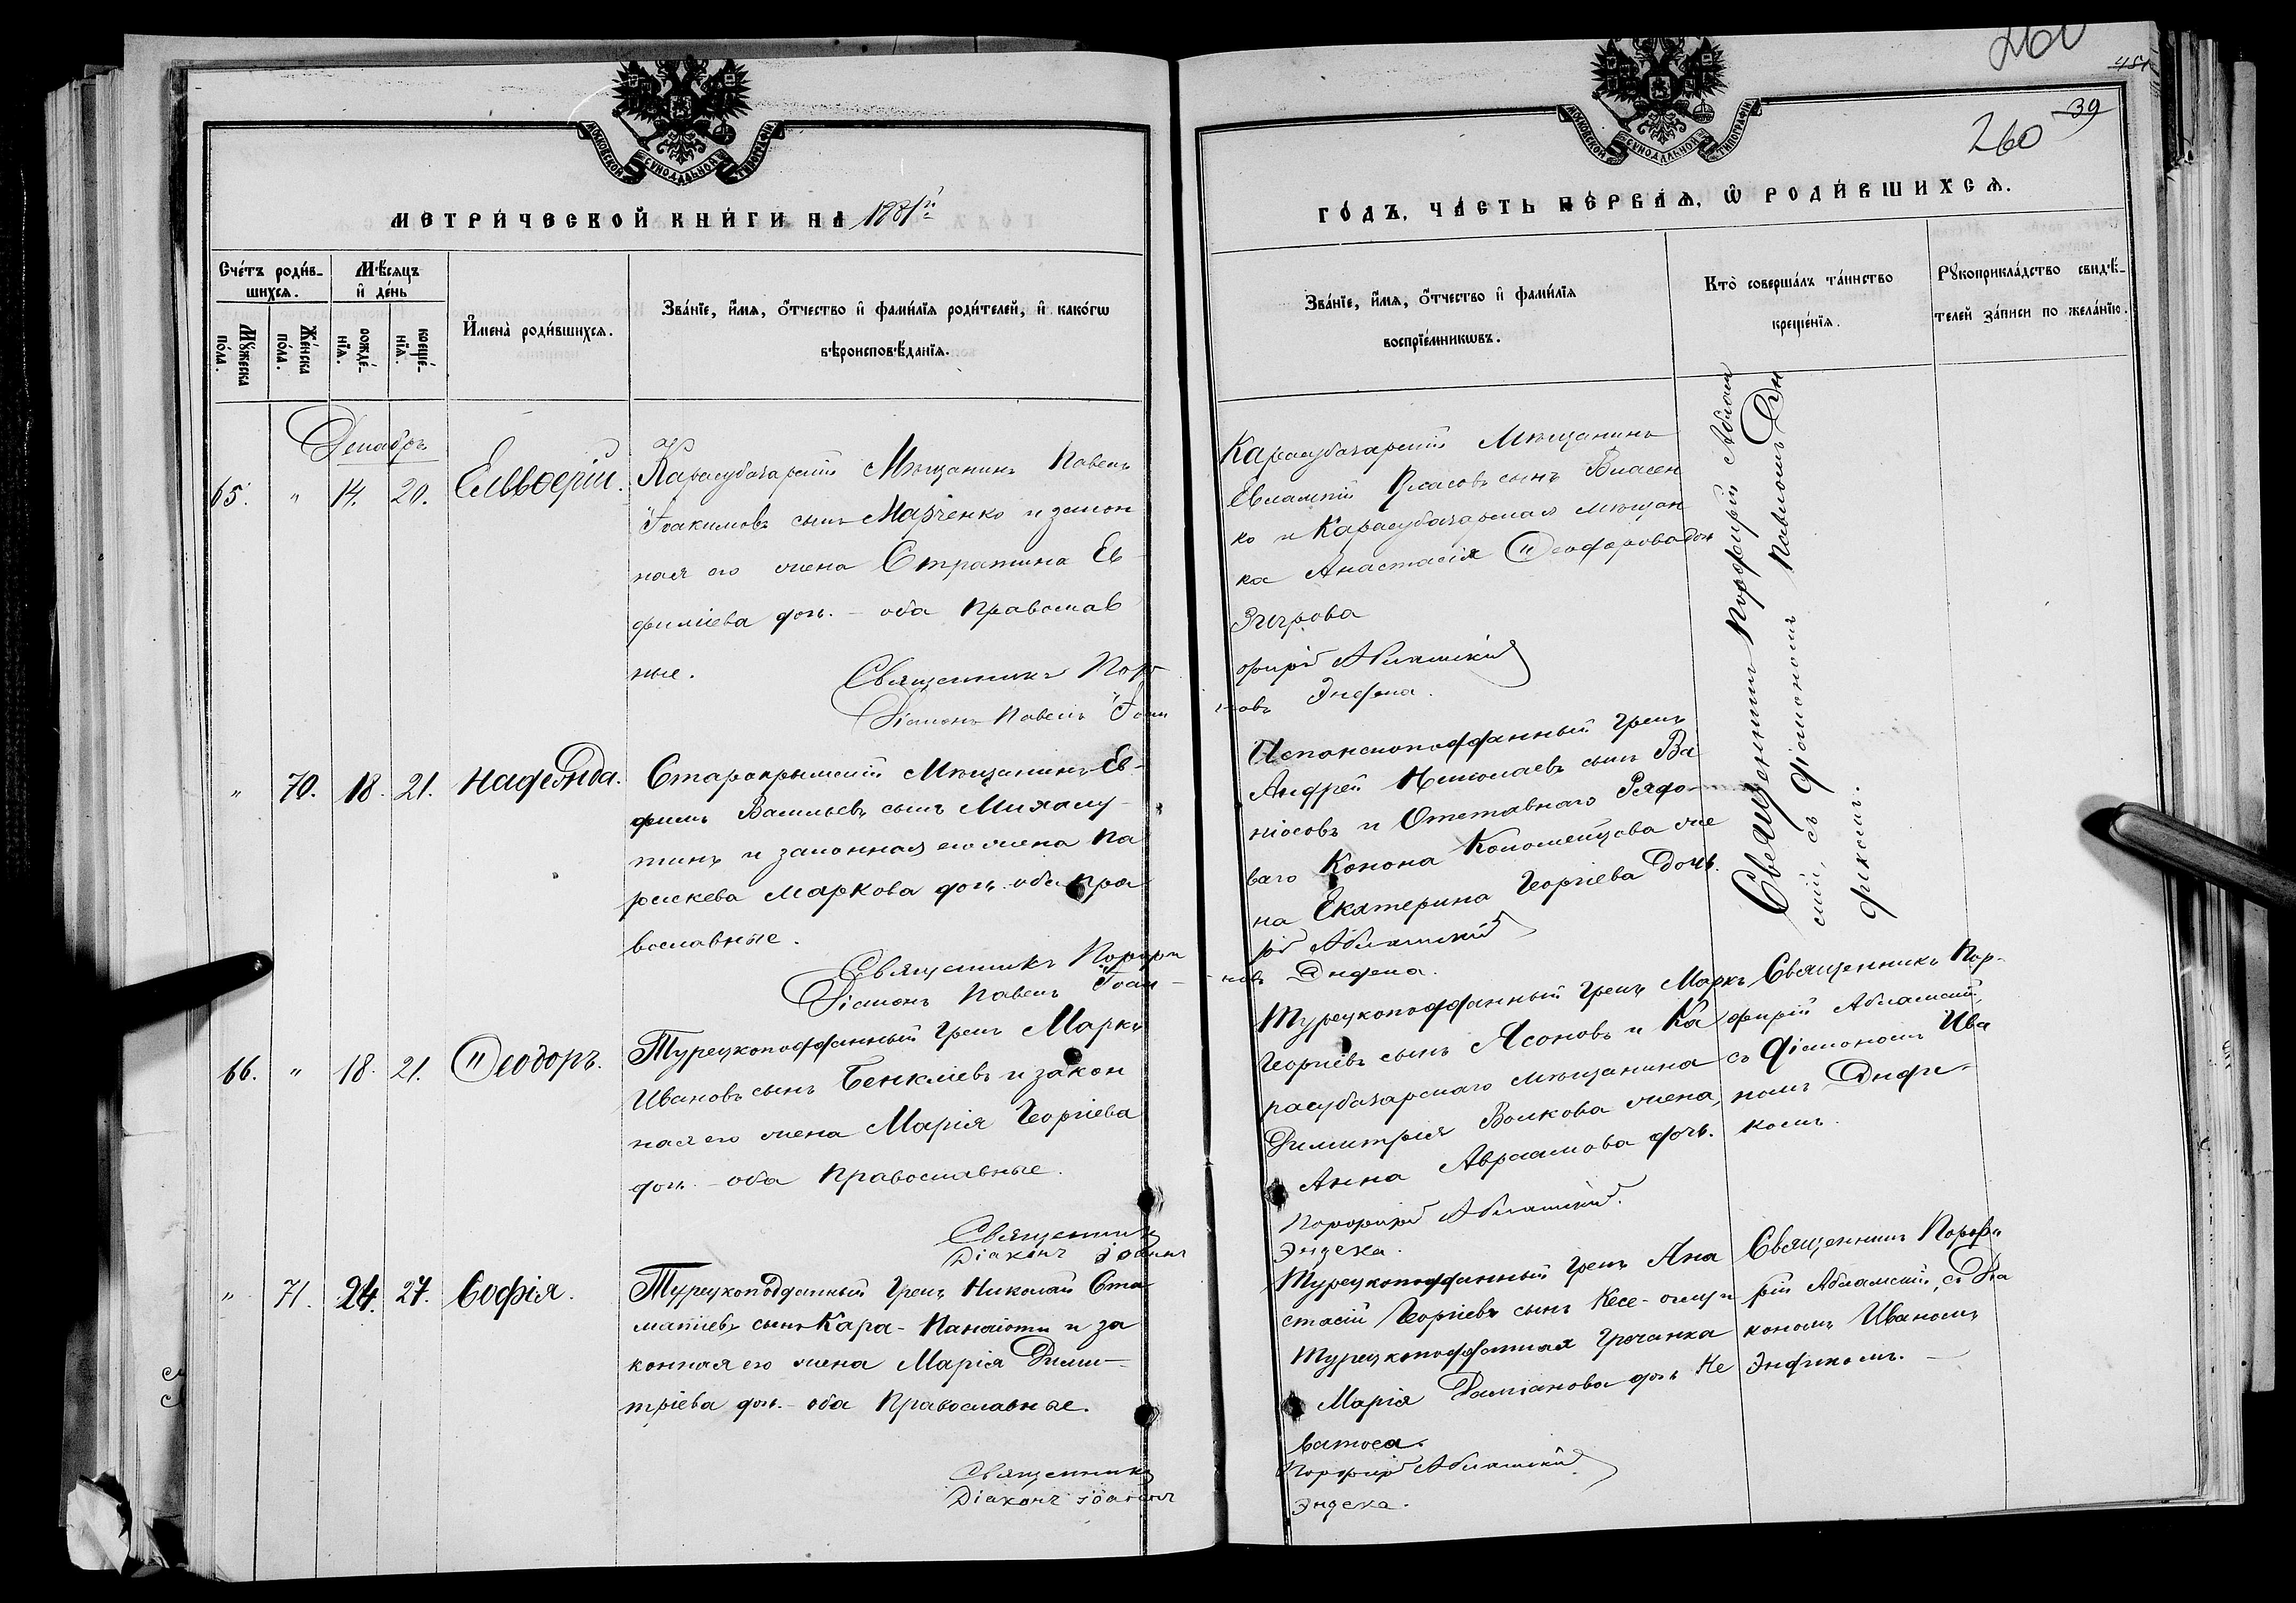 260
451
39
260
МОСКОВСКОЙ СУНОДАЛЬНОЙ ТИПОГРАФІИ
МОСКОВСКОЙ СУНОДАЛЬНОЙ ТИПОГРАФІИ
МЕТРИ́ЧЕСКОЙ КНИ́ГИ НА 1881й
ГО́ДЪ, ЧА́СТЬ ПЕ́РВАѦ, Ѡ҆ РОДИ́ВШИХСѦ.
Сче́тъ роди́в-
шихсѧ.
Мѣ́сѧцъ
и҆ де́нь
Мꙋ́жеска
по́ла.
Же́нска
по́ла.
рожде́-
нїѧ.
креще́-
нїѧ.
И҆мена̀ роди́вшихсѧ.
Зва́нїе, и҆́мѧ, ѻ҆́тчество и҆ фами́лїѧ роди́телей, и҆ како́гѡ
вѣроисповѣ́данїѧ.
Зва́нїе, и҆́мѧ, ѻ҆́тчество и҆ фами́лїѧ
воспрїе́мникѡвъ.
Кто̀ соверша́лъ та́инство
креще́нїѧ.
Рꙋкоприкла́дство свидѣ́-
телей за́писи по жела́нїю.
Декабрь
65. " 14. 20. Елевѳерій.
Карасубазарскій Мѣщанинъ Павелъ
Іоакимовъ сынъ Марченко и закон
ная его жена Стратина Ев
фиміева доч. - оба Православ
ные.
Священникъ Порф
Діаконъ Павелъ Іоан
Карасубазарскій Мѣщанинъ
Евлампій Власовъ сынъ Власен
ко и Карасубазарская мѣщан
ка Анастасія Ѳеодорова доч
Згурова
фирій Абламскій
новъ Эндека.
Священникъ Порфирій Аблам
скій, съ діакономъ Павломъ Эн
дикомъ.
" 70. 18. 21. Нафеонда.
Старокрымскій Мѣщанинъ Ев-
фимъ Васильевъ сынъ
тинъ и законная его жена Па
раскева Маркова доч. оба пра
вославные.
Священникъ Порфи
Діаконъ Павелъ Іоан
Испанскоподданный Грекъ
Андрей Николаевъ сынъ Ва
ніосовъ и Отставнаго Рядо-
ваго Конона Коломейцова же
на Екатерина Георгіева дочь.
рій Абламскій
новъ Эндека.
66. " 18. 21. Ѳеодоръ.
Турецкоподданный Грекъ Маркъ
Ивановъ сынъ Бекліевъ и закон
ная его жена Марія Георгіева
доч. - оба Православные.
Священникъ
Діаконъ Іоаннъ
Турецкоподданный Грекъ Маркъ
Георгіевъ сынъ Ясоновъ и Ка
расубазарскаго мѣщанина
Димитрія Волкова жена,
Анна Авраамова доч.
Порфирій Абламскій.
Эндека.
Священникъ Пор-
фирій Абламскій,
съ діакономъ Ива
номъ Энди-
комъ.
" 71. 24. 27. Софія.
Турецкоподданный Грекъ Николай Ста
матіевъ сынъ Кара-Панаіоти и за
конная его жена Марія Дими-
тріева доч. - оба Православные.
Священникъ
Діаконъ Іоаннъ
Турецкоподданный Грекъ Ана
стасій Георгіевъ сынъ Кесе-оглу и
Турецкоподданная Гречанка
Марія Даміанова доч Не
ватоса.
Порфирій Абламскій
Эндека.
Священникъ Порфи
рій Абламскій, съ Діа
кономъ Иваномъ
Эндикомъ. -